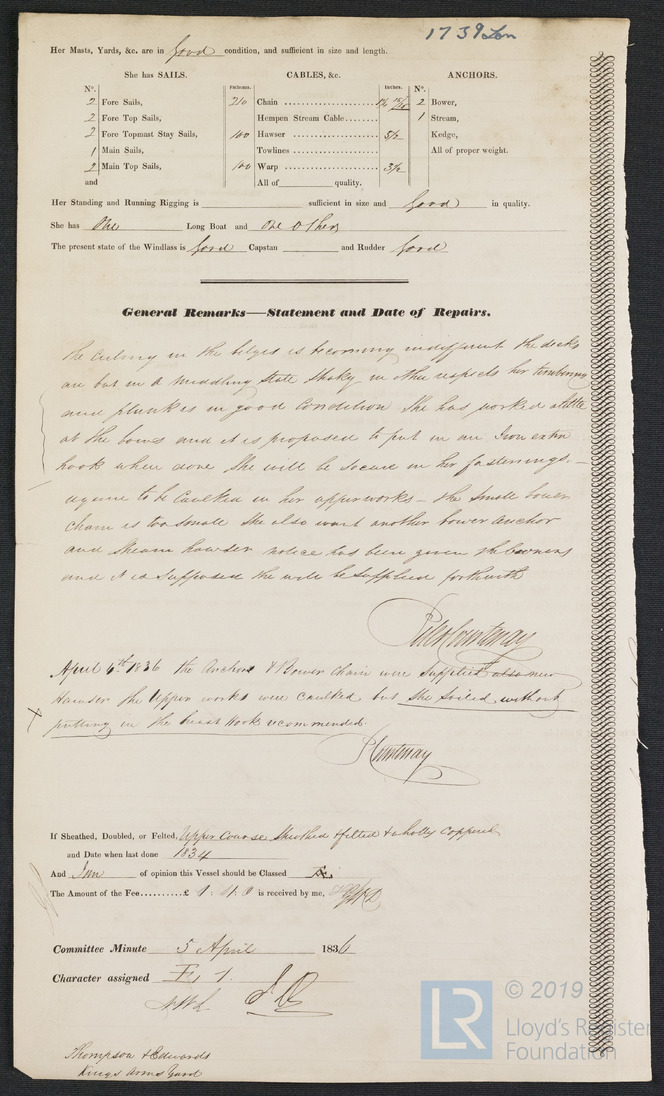 1739 Lon
Her Masts, Yards, &c. are in Good condition, and sufficient in size and length.
She has SAILS. CABLES, &c. ANCHORS.
N°. Fathoms. Inches. N°.
2 Fore Sails, 210 Chain 2 Bower,
2 Fore Top Sails, Hempen Stream Cable 1 Stream,
2 Fore Topmast Stay Sails, 100 Hawser 5½ Kedge,
1 Main Sails, Towlines All of proper weight.
2 Main Top Sails, 100 Warp 3½
and All of quality.
Her Standing and Running Rigging is sufficient in size and Good in quality.
She has One Long Boat and One Others
The present state of the Windlass is Good Capstan and Rudder Good
General Remarks—Statement and Date of Repairs.
the in the bilges is becoming indifferent the decks
are but in a middling State Shaky in other respects her timbering
and plank is in good Condition She has worked a little
at the bows and it is proposed to put in an Iron extra
hook when done She will be secure in her fastenings —
again to be Caulked in her upperworks — the Small bower
chain is too Small She also want another bower anchor
and Stream hawser notice has been given the owners
and it is Supposed the will be Supplied forthwith
Courtenay
April 6th 1836 the Anchors & Bower Chain were Supplied also new
Hawser the Upper works were Caulked but She Sailed without
x putting in the breast Hook recommended.
Courtenay
If Sheathed, Doubled, or Felted, Upper Course Sheathed & felted & wholly Coppered
and Date when last done 1834
And I am of opinion this Vessel should be Classed Æ
The Amount of the Fee £ 1: 0 is received by me,
Committee Minute 5 April 1836
Character assigned Æ 1.
Thompson & Edwards
Kings Arms Yard
© 2019
LR
Lloyd's Register
Foundation